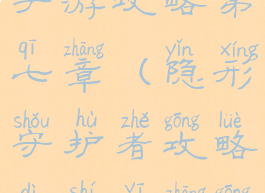 游攻略第
qī zhāng yǐn xíng
七章（隐形
shǒu hù zhě gōng lüè
守护者攻略
dì shí yī zhāng gōng